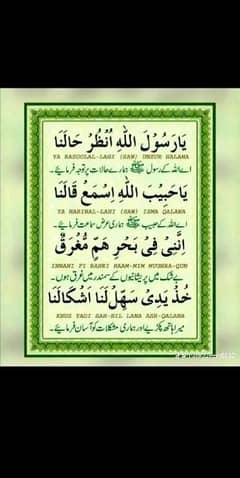 يَارَسُوْلَ اللّٰهِ اُنْظُرْ حَالَنَا
YA RASOOLAL-LAHI (SAW) UNZUR HALANA
اے اللہ کے رسول ﷺ ہمارے حالات پر توجہ فرمائیے۔
يَاحَبِيْبَ اللّٰهِ اِسْمَعْ قَالَنَا
YA HABIBAL-LAHI (SAW) ISMA QALANA
اے اللہ کے حبیب ﷺ ہماری عرض سماعت فرمائیے۔
اِنَّنِىْ فِىْ بَحْرِ هَمٍّ مُّغْرَقٌ
INNANI FI BAHRI HAAM-MIM MUGHRA-QUN
بے شک میں پریشانیوں کے سمندر میں غرق ہوں۔
خُذْ يَدِىْ سَهِّلْ لَنَا اَشْكَالَنَا
KHUZ YADI SAH-HIL LANA ASH-QALANA
میرا ہاتھ پکڑیے اور ہماری مشکلات کو آسان فرمائیے۔